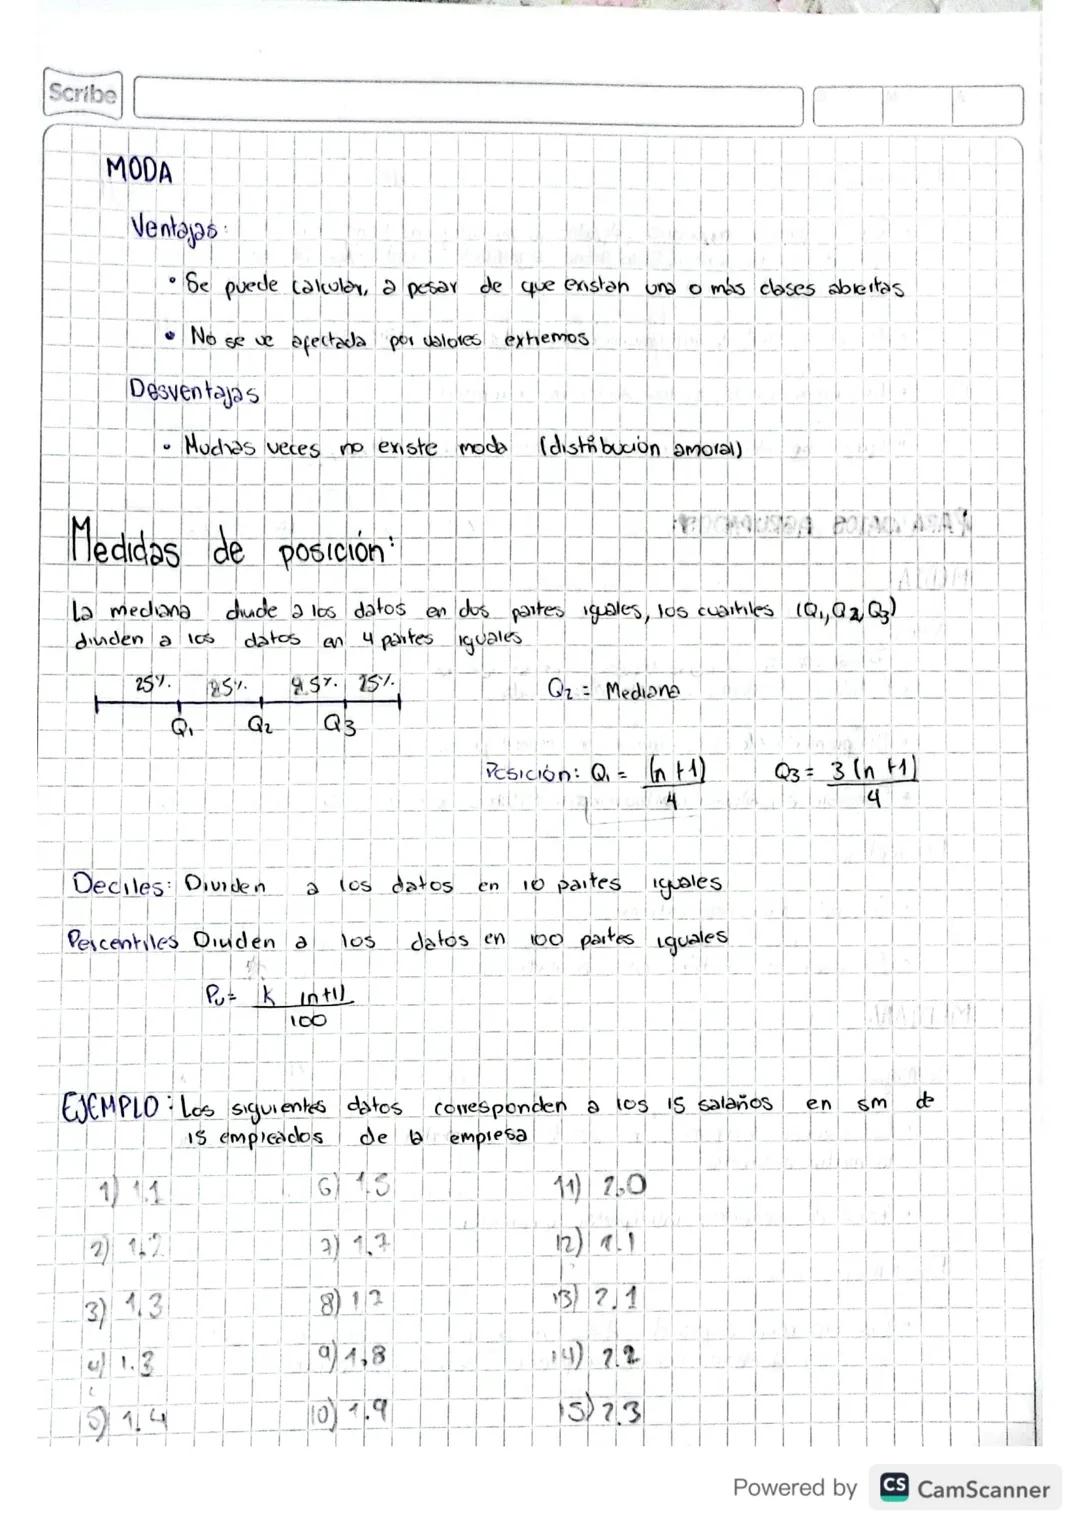 Scribe
MODA
Ventajas:
• Se puede calcular, a pesar de que existan una o más clases abiertas
• No se ve afectada por valores extremos
Desventajas
• Muchas veces no existe moda (distribución amoral)
Medidas de posición:
La mediana divide a los datos en dos partes iguales, los cuartiles (Q₁, Q₂, Q₃)
dividen a los datos en 4 partes iguales
25%. 25%. 25%. 25%.
Q₁ Q₂ Q3
Q₂ = Mediana
Posición: Q₁ = (n+1)/4 Q3 = 3(n+1)/4
Deciles: Dividen a los datos en 10 partes iguales
Percentiles Dividen a los datos en 100 partes iguales
k (n+1)/100
EJEMPLO: Los siguientes datos corresponden a los 15 salarios en sm de
15 empleados de la empresa
1) 1.1 6) 1.5 11) 2.0
2) 1.2 7) 1.7 12)
3) 1.3 8) 13) 2.1
4) 1.3 9) 1,8 14) 2.2
5) 1.4 10) 1.9 15) 2.3
Powered by CS CamScanner